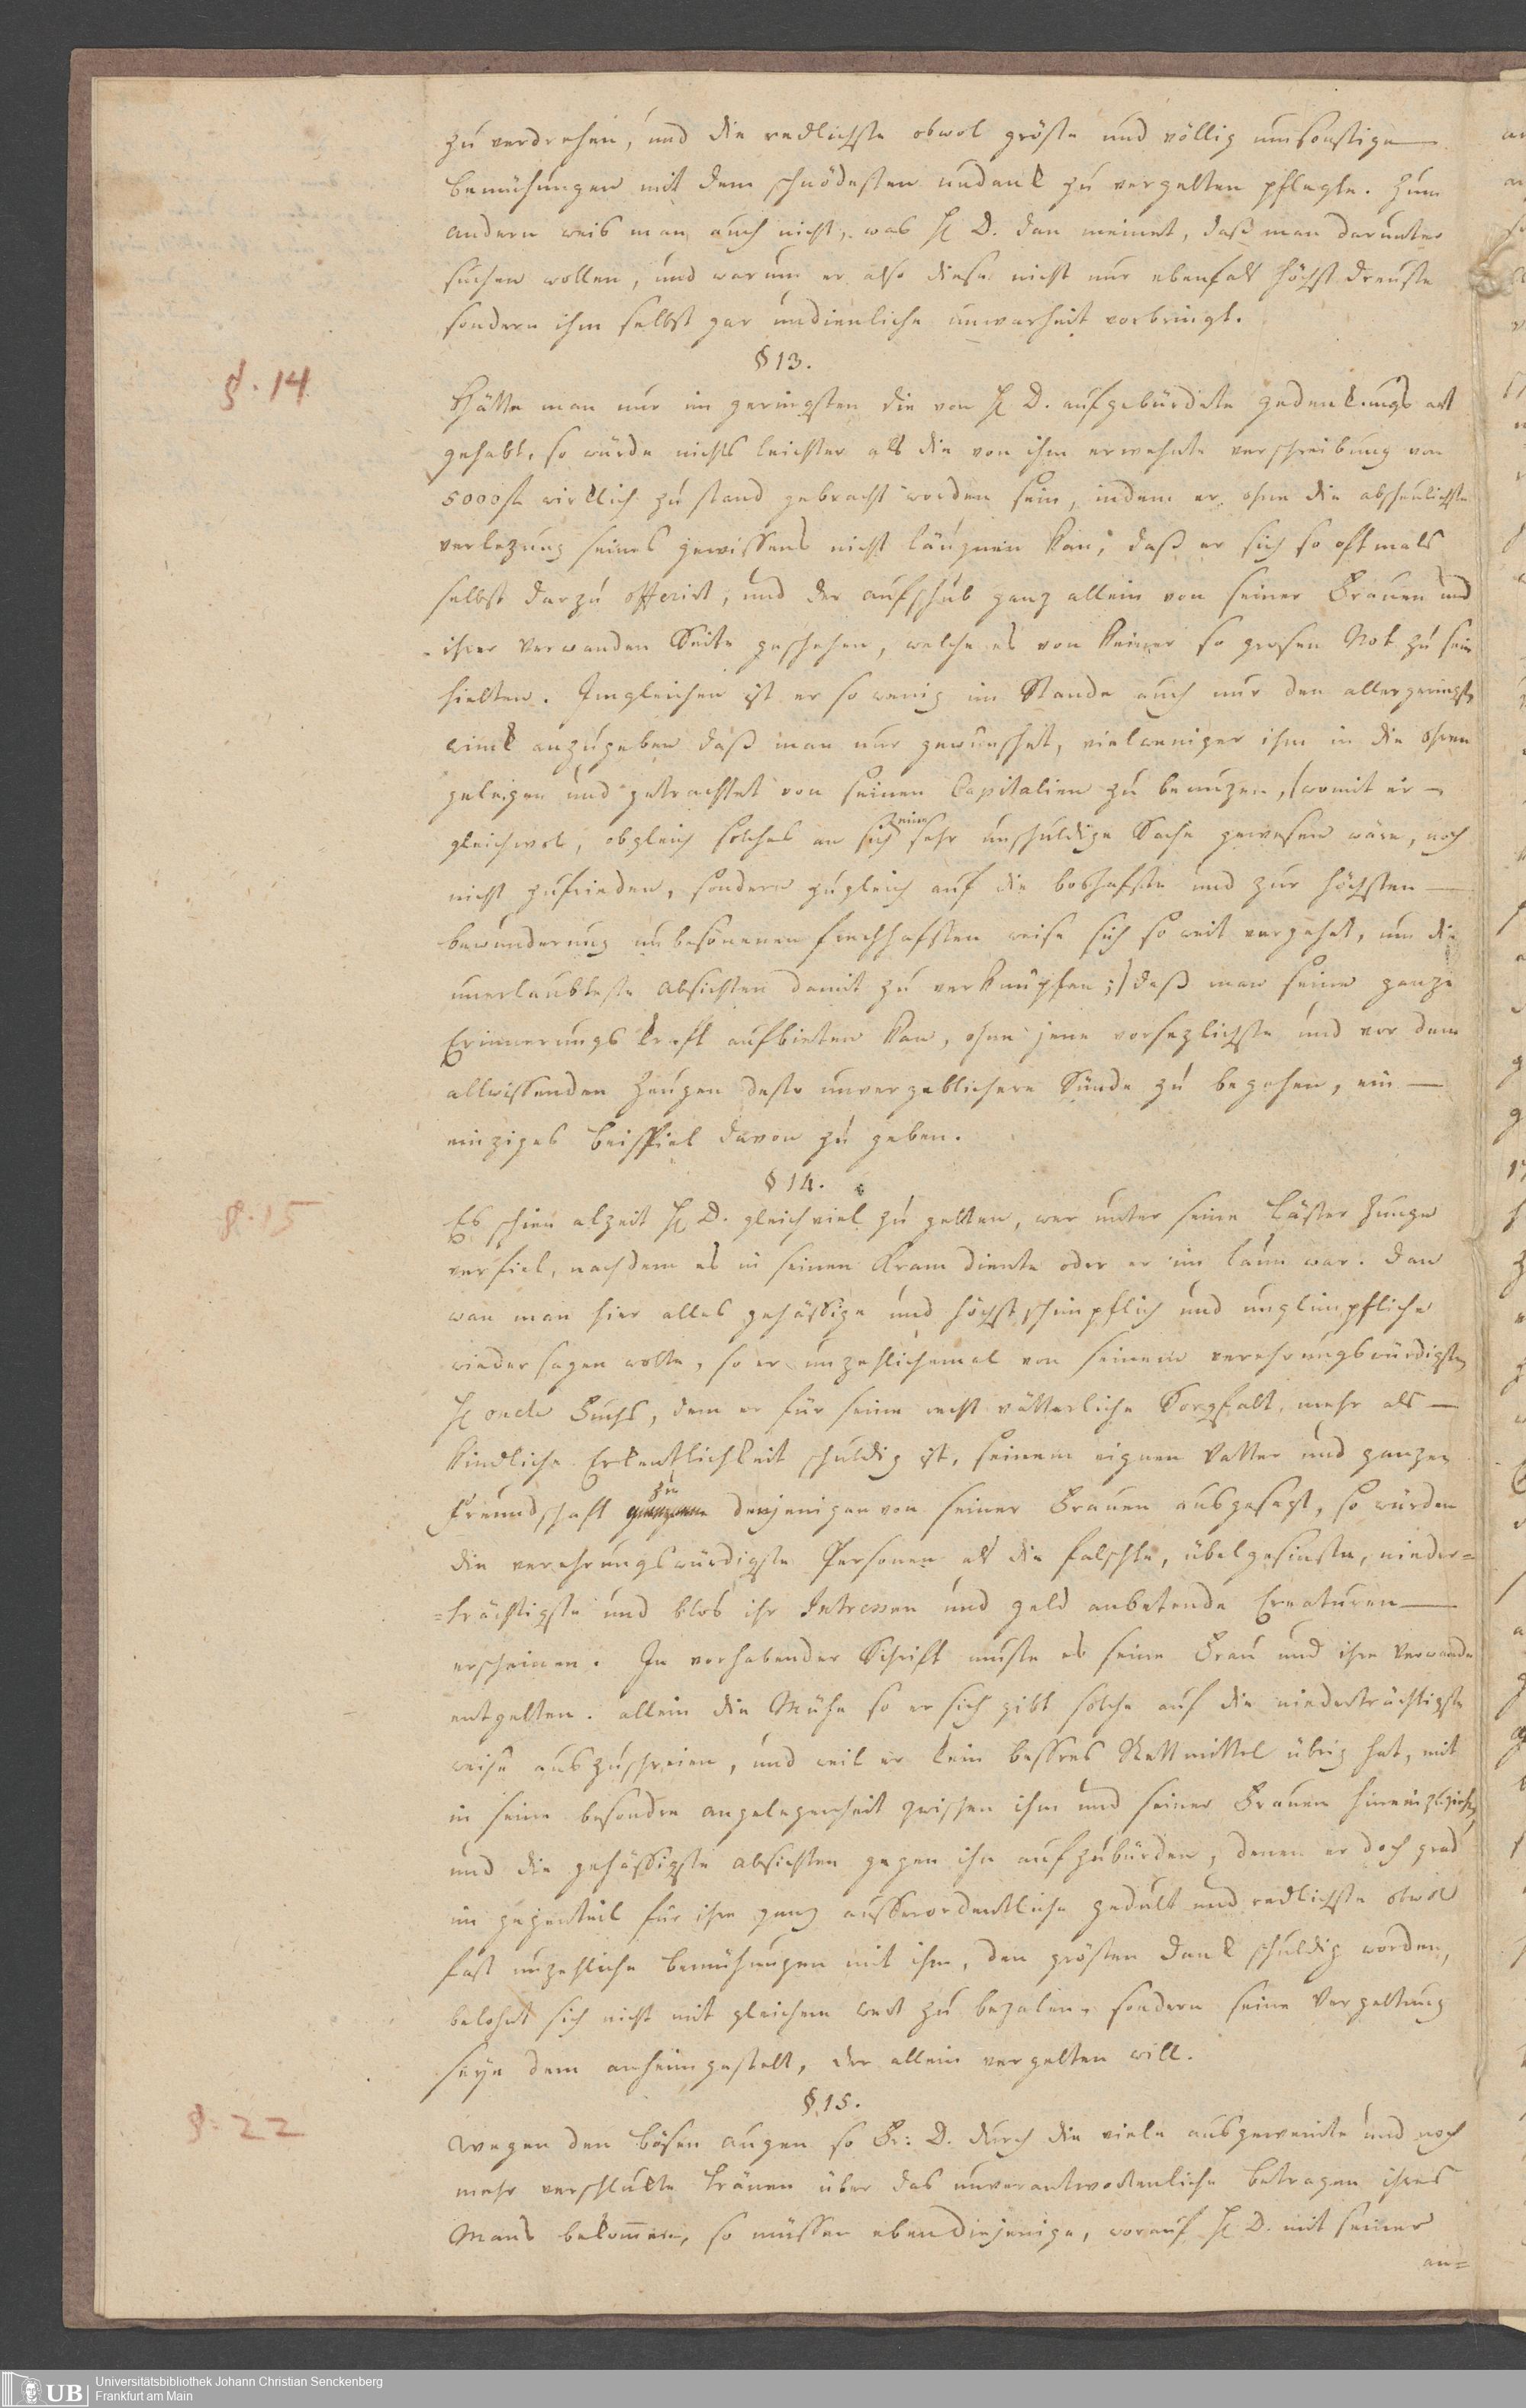 zu verdrehen, und die redlichste obwol gröste und völlig umsonstige
bemühungen mit dem schnödesten undank zu vergelten pflegte. Zum
andern weis man auch nicht, was H D. dan meinet, daß man darunter
suchen wollen, und warum er also diese nicht nur ebenfals höchst dreuste
sondern ihm selbst gar undienliche unwarheit vorbringt.
§ 13.
§. 14
Hätte man nur im geringsten die von H D. aufgebürdete gedenkungs art
gehabt, so würde nichts leichter als die von ihm erwehnte verschreibung von
5000 fl wirklich zu stand gebracht worden sein, indem er ohne die abscheulichste
verlezung seines gewissens nicht läugnen kan, daß er sich so oftmals
selbst darzu offerirt, und der aufschub ganz allein von seiner Frauen und
ihrer verwanden Seite geschehen, welche es von keiner so grosen Not zu sein
hielten. Imgleichen ist er so wenig im Stande auch nur den allergeringsten
wink anzugeben daß man nur gewünschet, vielweniger ihm in die ohren
gelegen und getrachtet von seinen Capitalien zu benuzen, (womit er
gleichwol, obgleich solches an sich eine sehr unschuldige Sache gewesen wäre, noch
nicht zufrieden, sondern zugleich auf die boshafste und zur höchsten
bewunderung unbesonnenen frechhafsten weise sich so weit vergehet, um die
unerlaubteste absichten damit zu verknüpfen;) daß man seine ganze
Erinnerungs kraft aufbieten kan, ohne jene vorsezlichste und vor dem
allwissenden Zeugen desto unvergeblichere Sünde zu begehen, ein
einziges beispiel davon zu geben.
§ 14.
§. 15
Es schien alzeit H D. gleich viel zu gelten, wer unter seine Läster Zunge
verfiel, nachdem es in seinen Kram diente oder er im laun war. Dan
wan man hier alles gehässige und höchst schimpflich und unglimpfliche
wieder sagen wolte, so er unzehlichemal von seinem verehrungswürdigsten
H oncle Fuchs, dem er für seine recht vätterliche Sorgfalt, mehr als
kindliche Erkentlichkeit schuldig ist, seinem eignen Vatter und ganzen
Freundschaft zu denjenigen von seiner Frauen ausgesagt, so würden
die verehrungswürdigste Personen als die falschte, übelgesinste, nieder=
=trächtigste und blos ihr Intressen und geld anbetende Creaturen
erscheinen. In vorhabender Schrift muste es seine Frau und ihre verwande
entgelten. allein die Mühe so er sich gibt solche auf die niederträchtigste
weise auszuschreien, und weil er kein bessres Rettmittel übrig hat, mit
in seine besondre angelegenheit zwischen ihm und seiner Frauen hineinzuziehen
und die gehässigste absichten gegen ihn aufzubürden, denen er doch grad
im gegenteil für ihre ganz ausserordentliche gedult und redlichste obwol
fast unzehliche bemühungen mit ihm, den grösten dank schuldig worden,
belohnt sich nicht mit gleichem wert zu bezalen, sondern seine Vergeltung
seye dem anheimgestelt, der allein vergelten will.
§ 15.
§. 22
Wegen den bösen augen so Fr: D. durch die viele ausgeweinte und noch
mehr verschlukte tränen über das unverantwortenliche betragen ihres
Mans bekommen, so müssen eben diejenige, worauf H D. mit seiner
an=
Universitätsbibliothek Johann Christian Senckenberg
Frankfurt am Main
UB